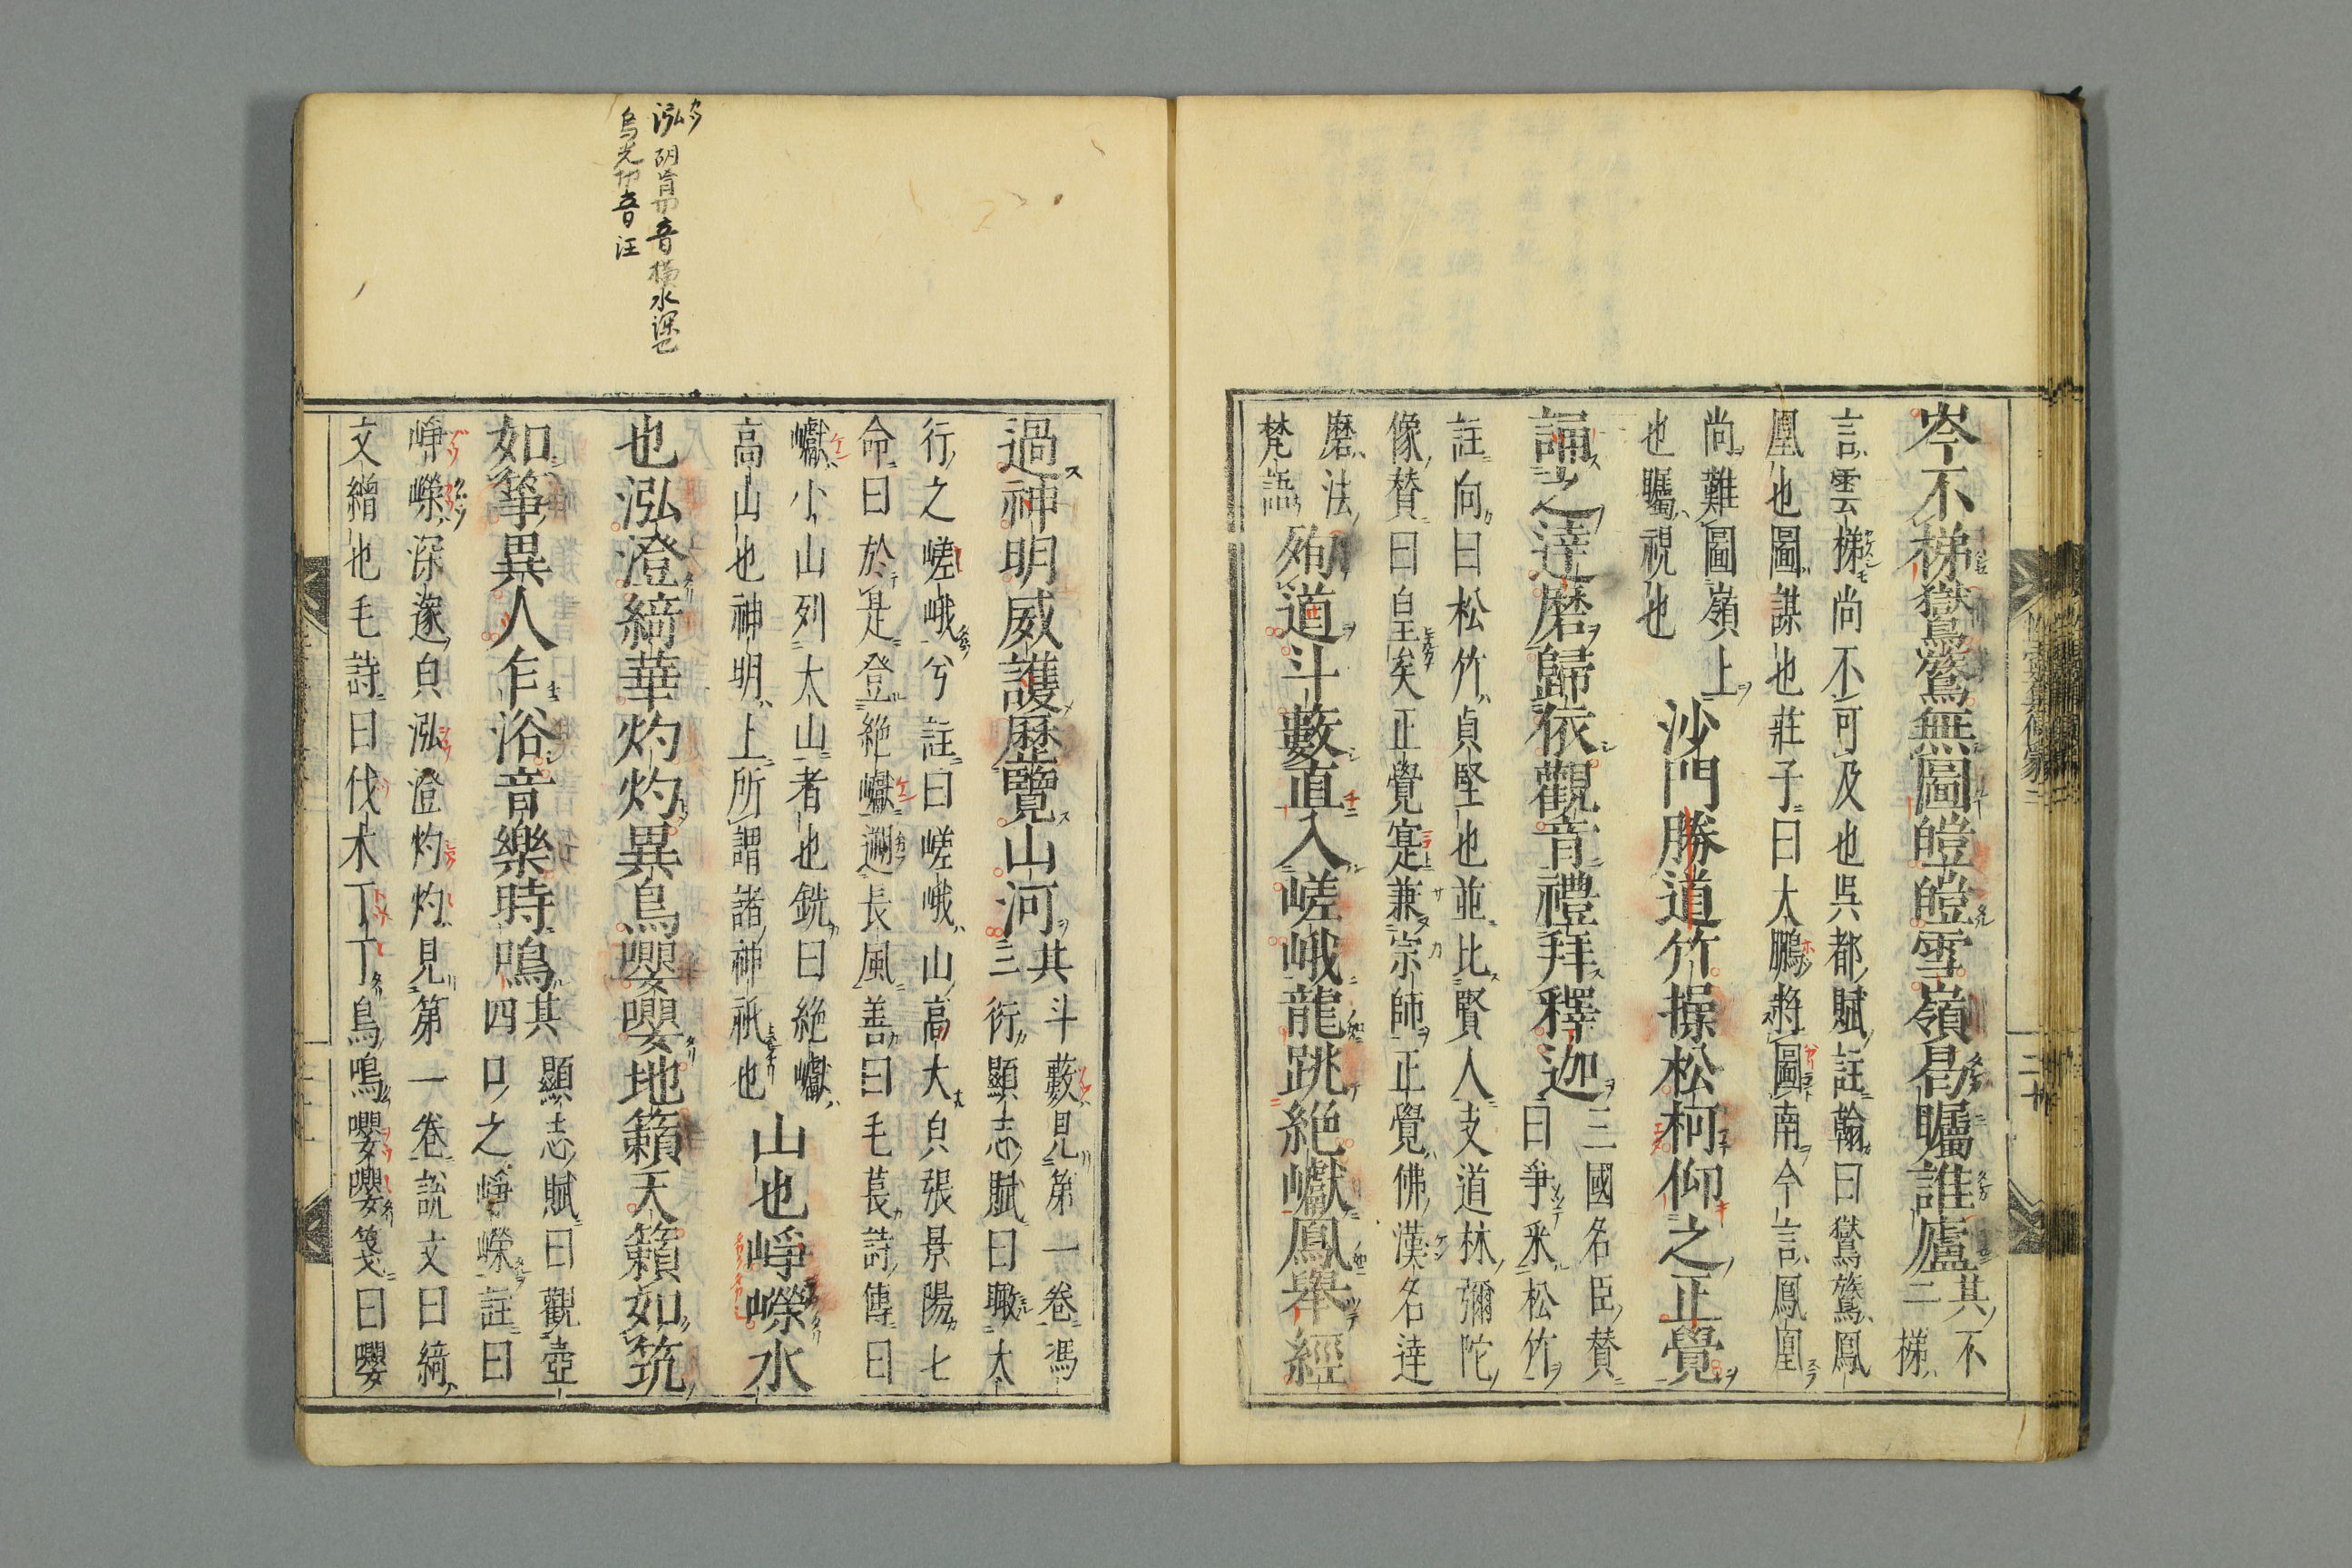 岑不梯鸑鷟無圖皚皚雪嶺曷矚誰廬其二 不梯
言雲梯尚不可及也吳都賦註翰曰鸑鷟鳳
凰也圖謀也莊子曰大鵬將圖南今言鳳凰
尚難圖嶺上
也矚視也
沙門勝道竹操松柯仰之正覺
誦之達磨歸依觀音禮拜釋迦
三國名臣贊
曰爭釆松竹
註向曰松竹貞堅也並比賢人支道林彌陀
像贊曰皇矣正覺寔兼宗師正覺佛漢名達
磨法
梵語
殉道斗藪直入嵯峨龍跳絶巘鳳舉經
過神明威護歷覽山河其三
斗藪見第一卷馮
衍顯志賦曰瞰太
行之嵯峨兮註曰嵯峨山高大皃張景陽七
命曰於是登絶巘遡長風善曰毛萇詩傳曰
巘小山列大山者也銑曰絶巘
高山也神明上所謂諸神祇也
山也崢嶸水
也泓澄綺華灼灼異鳥嚶嚶地籟天籟如筑
如箏異人乍浴音樂時鳴其四
顯志賦曰觀壺
口之崢嶸註曰
崢嶸深邃皃泓澄灼灼見第一卷說文曰綺
文繒也毛詩曰伐木丁丁鳥鳴嚶嚶箋曰嚶
泓 阴肯切音橫水深也
烏光切音汪